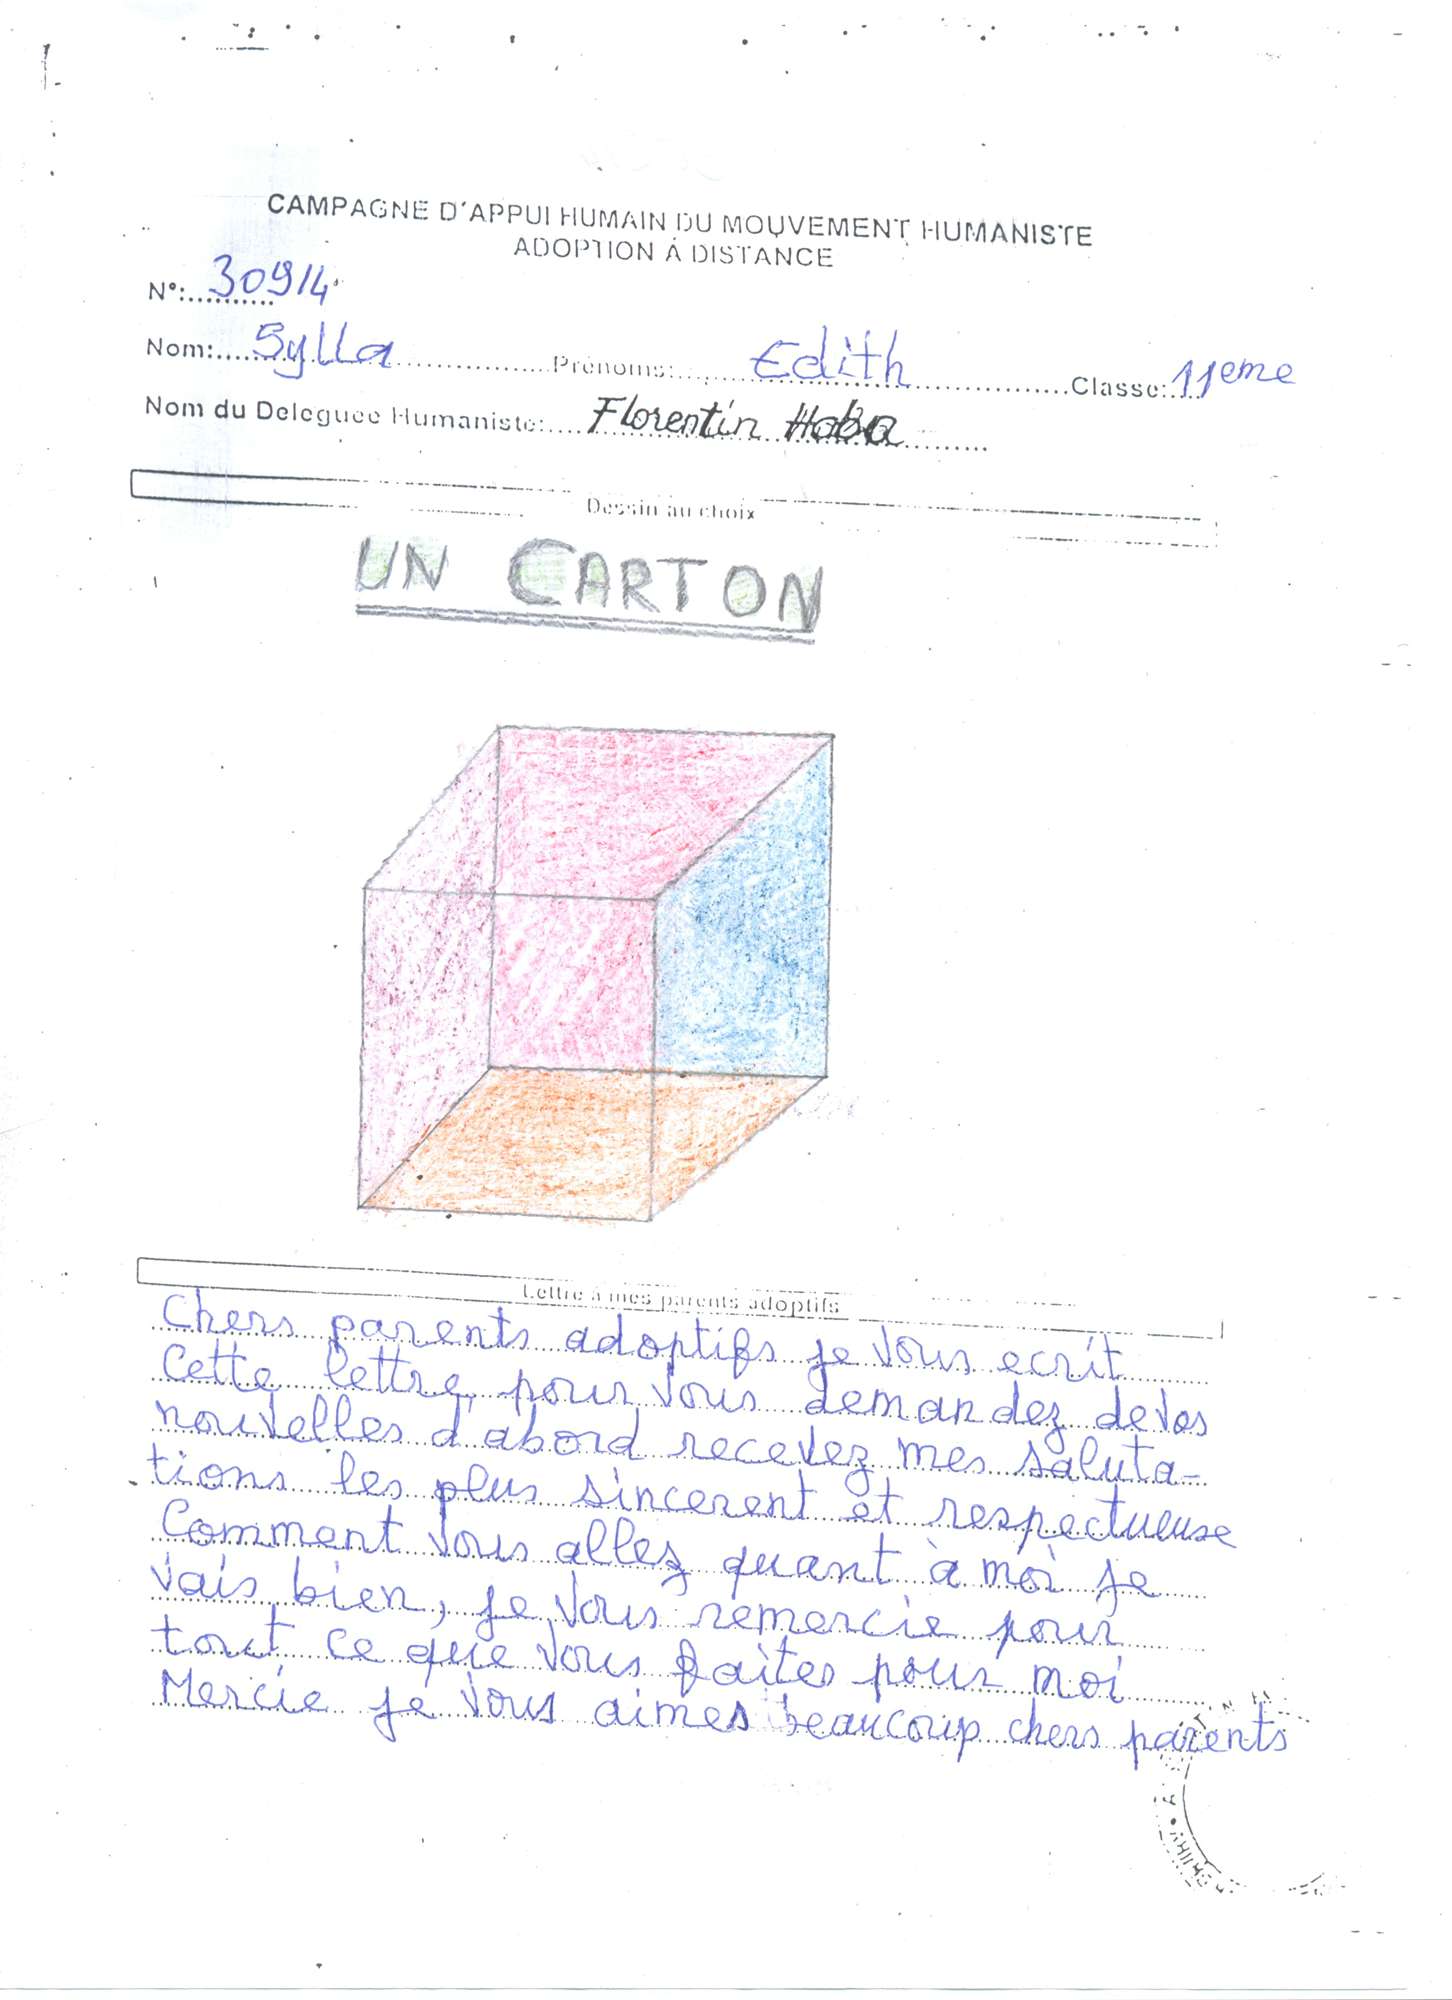 CAMPAGNE D'APPUI HUMAIN DU MOUVEMENT HUMANISTE
ADOPTION À DISTANCE
N°:..........30914
Nom:....Sylla....Prénoms:....Edith....Classe:11eme
Nom du Deleguee Humaniste:....Florentin Haba....
Dessin au choix
UN CARTON
Lettre à mes parents adoptifs
Chers parents adoptifs je vous ecrit
Cette lettre, pour vous demandez de vos
nouvelles d'abord recevez mes saluta-
tions les plus sincerent et respectueuse
Comment vous allez quant à moi je
vais bien, je vous remercie pour
tout ce que vous faites pour moi
Mercie je vous aimes beaucoup chers parents